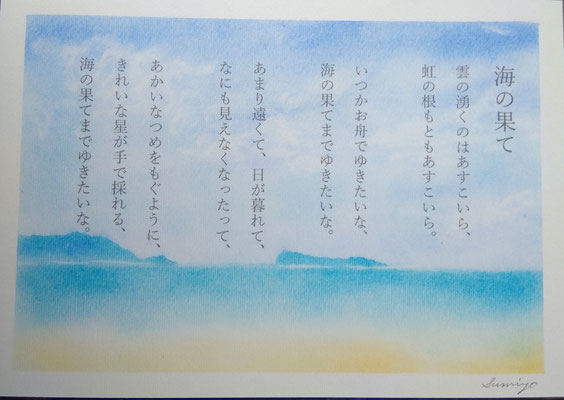 海の果て
雲の湧くのはあすこいら、
虹の根もともあすこいら。
いつかお舟でゆきたいな、
海の果てまでゆきたいな。
あまり遠くて、日が暮れて、
なにも見えなくなったって、
あかいなつめをもぐように、
きれいな星が手で採れる、
海の果てまでゆきたいな。
Sumiyo